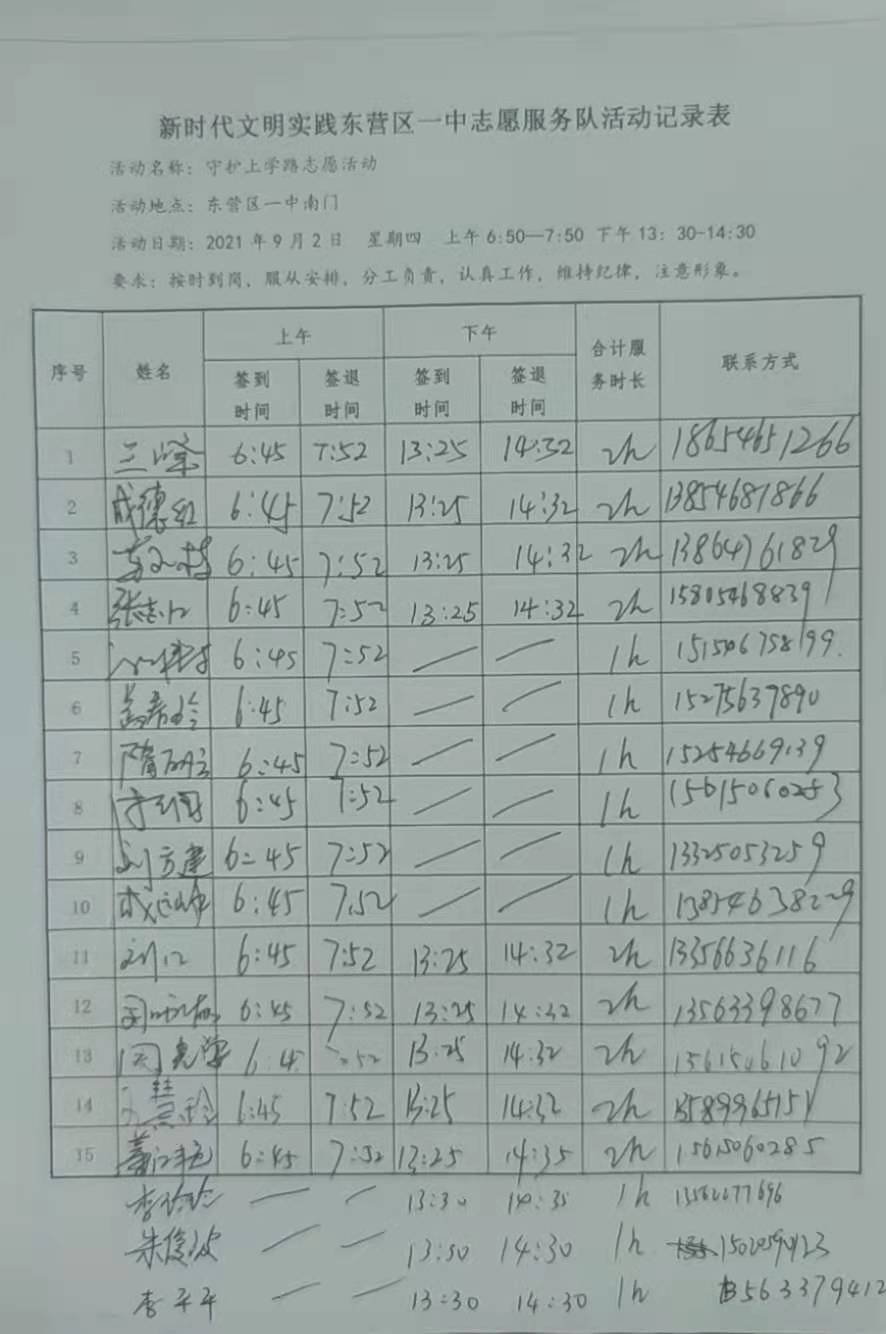 新时代文明实践东营区一中志愿服务队活动记录表
活动名称：守护上学路志愿活动
活动地点：东营区一中南门
活动日期：2021年9月2日 星期四 上午6:50—7:50 下午13：30-14:30
要求：按时到岗，服从安排，分工负责，认真工作，维持纪律，注意形象。
序号 姓名 上午 下午 合计服务时长 联系方式
签到时间 签退时间 签到时间 签退时间
1 6:45 7:52 13:25 14:32 2h 18654651266
2 成德红 6:45 7:52 13:25 14:32 2h 13854681866
3 6:45 7:52 13:25 14:32 2h 13864761829
4 6:45 7:52 13:25 14:32 2h 15805468839
5 6:45 7:52 — — 1h
6 6:45 7:52 — — 1h 15275637890
7 6:45 7:52 — — 1h 15254669139
8 6:45 7:52 — — 1h 15615060253
9 刘方建 6:45 7:52 — — 1h 13325053259
10 6:45 7:52 — — 1h 13854638229
11 6:45 7:52 13:25 14:32 2h 13356636116
12 6:45 7:52 13:25 14:32 2h 13563398677
13 6:4 :52 13:25 14:32 2h 15615061092
14 6:45 7:52 13:25 14:32 2h
15 6:45 7:52 13:25 14:35 2h 15615060285
李玲玲 — — 13:30 14:35 1h
朱俊波 — — 13:30 14:30 1h
李平平 — — 13:30 14:30 1h 13563379412